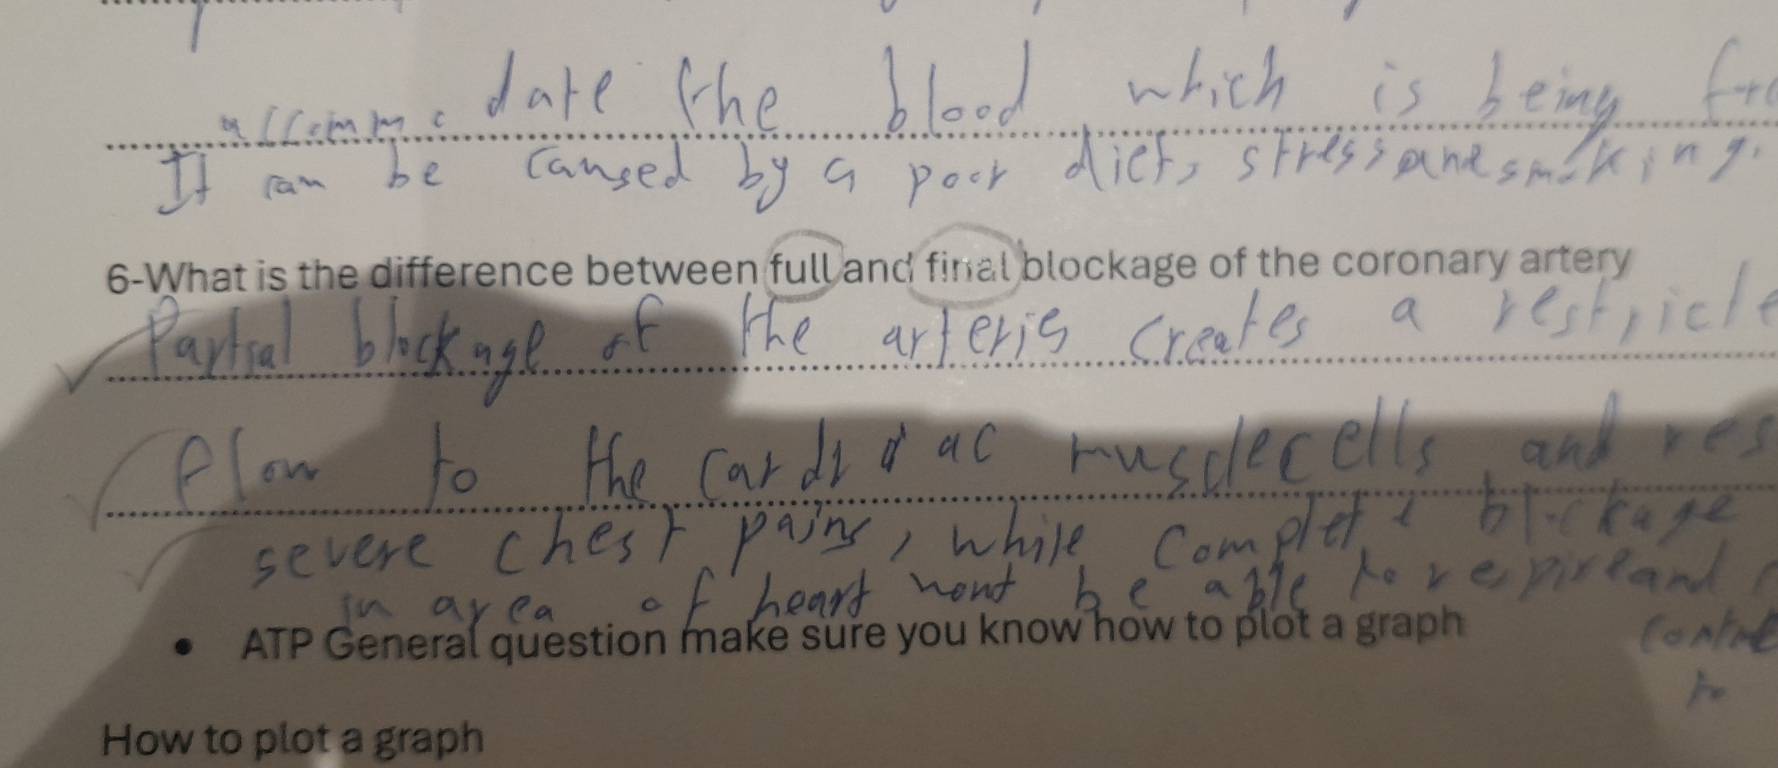 accommodate the blood which is being
It can be caused by a poor diet, stress and smoking.
6-What is the difference between full and final blockage of the coronary artery
Partial blockage of the arteris creates a
flow to the cardiac muscle cells and
severe chest pains, while complete blockage
in area of heart wont be able to respire and
• ATP General question make sure you know how to plot a graph
to
How to plot a graph